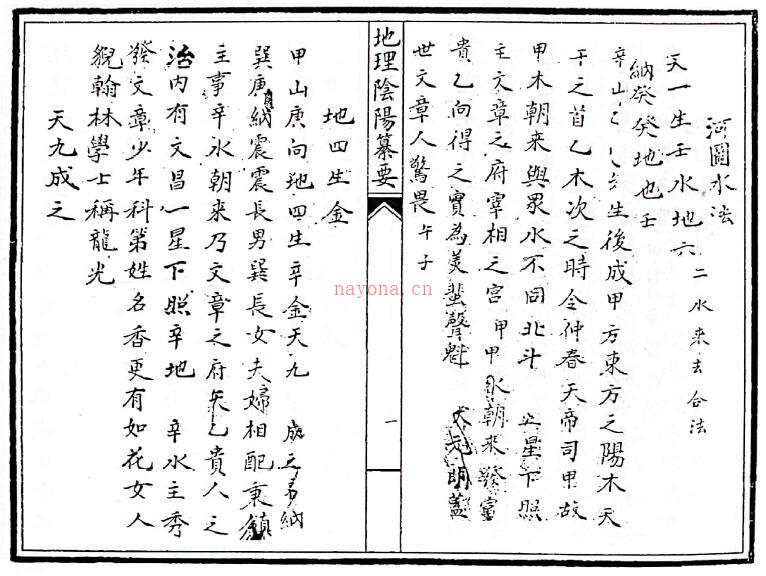 河圖水法
天一生壬水地六 二水來去合法
納癸癸地也壬
辛山 生後成甲方東方之陽木天
干之首乙木次之時令仲春天帝司甲故
甲木朝來與眾水不同北斗 星下照
主文章之府宰相之宮甲甲水朝來發富
貴乙向得之實為美蜚聲魁 明蓋
世文章人驚畏午子
地理陰陽纂要
一
地四生金
甲山庚向地四生辛金天九 成之 納
巽庚納震震長男巽長女夫婦相配秉鎮
主事辛水朝來乃文章之府天乙貴人之
治內有文昌一星下照辛地 辛水主秀
發文章少年科第姓名香更有如花女人
貌翰林學士稱龍光
天九成之
nayona.cn